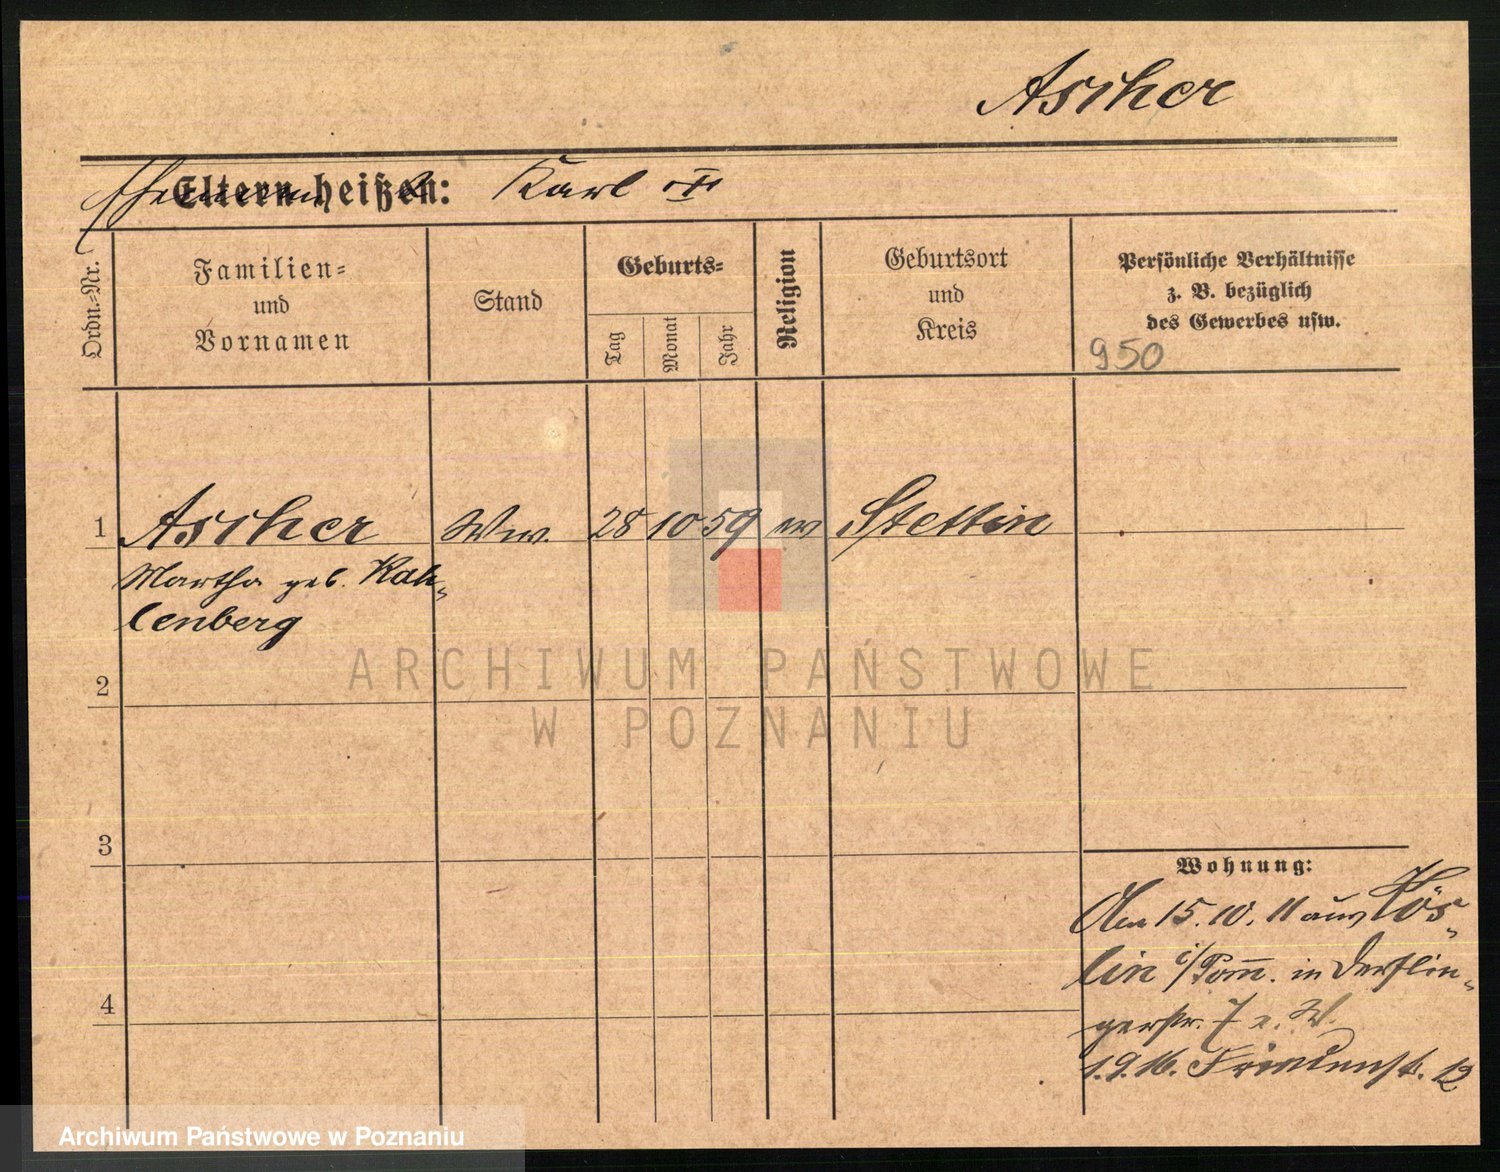 Ascher
Eltern heißen: Karl
Ordn.-Nr.
Familien-
und
Vornamen
Stand
Geburts-
Tag
Monat
Jahr
Religion
Geburtsort
und
Kreis
Persönliche Verhältnisse
z. B. bezüglich
des Gewerbes usw.
950
1 Ascher Ww. 28 10 59 Stettin
Martha geb. Kah-
lenberg
2
3
4
Wohnung:
Am 15. 10. 11 aus Kös-
lin i/Pom. in Derflin-
gerstr. 7 z. W.
1.9.16. Friedenst. 12
ARCHIWUM PAŃSTWOWE
W POZNANIU
Archiwum Państwowe w Poznaniu